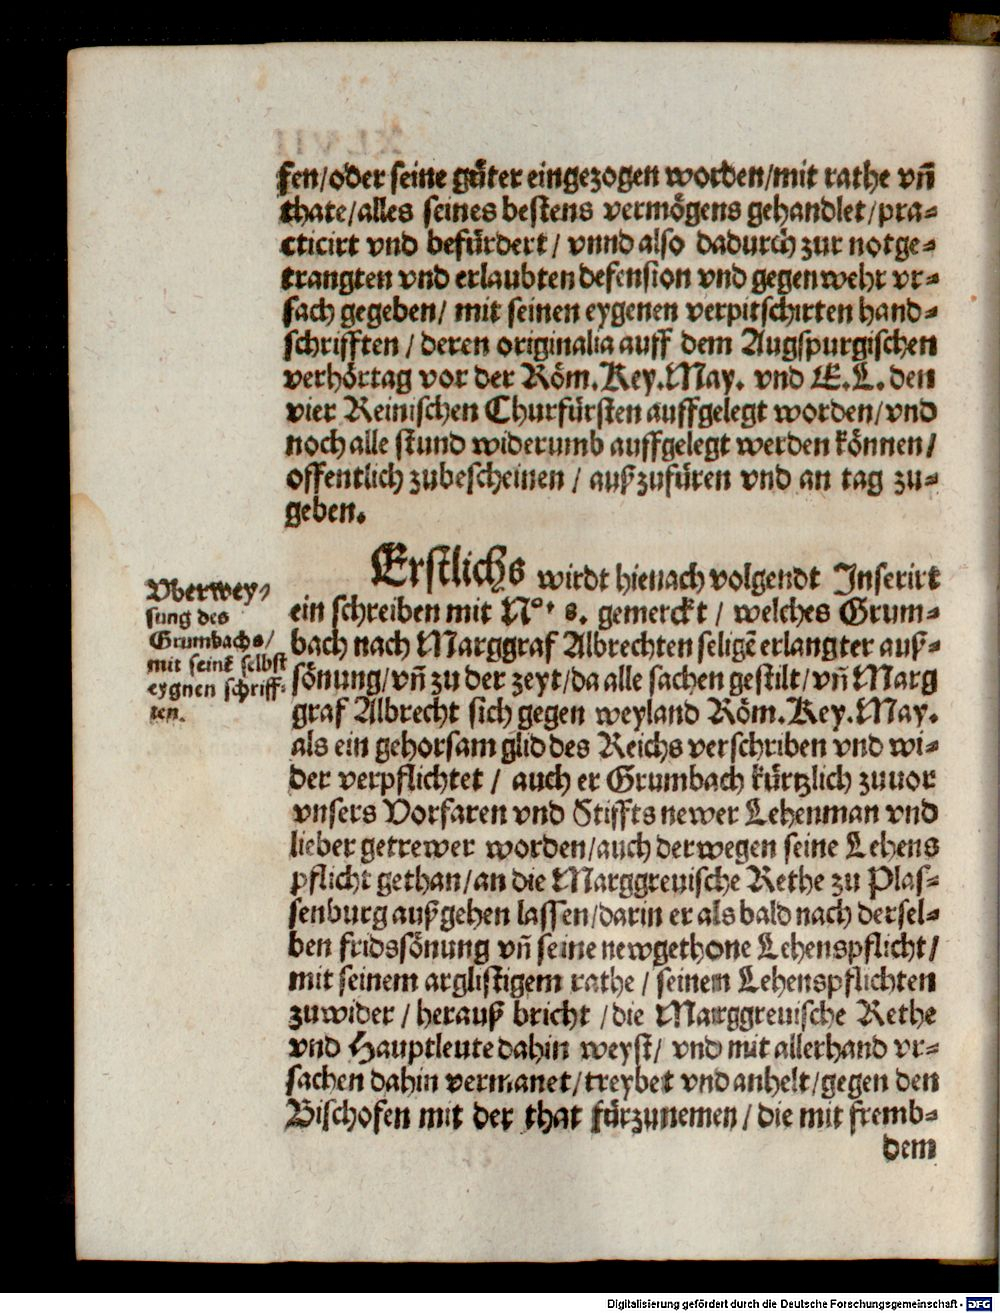 fen/oder seine gůter eingezogen worden/mit rathe vñ
thate/alles seines bestens vermögens gehandlet/pra-
cticirt vnd befürdert/ vnnd also dadurch zur notge-
trangten vnd erlaubten defension vnd gegenwehr vr-
sach gegeben/ mit seinen eygenen verpitschirten hand-
schrifften / deren originalia auff dem Augspurgischen
verhörtag vor der Röm.Key.May. vnd E.L. den
vier Reinischen Churfürsten auffgelegt worden/vnd
noch alle stund widerumb auffgelegt werden können/
offentlich zubescheinen / außzufüren vnd an tag zu-
geben.
Erstlichs wirdt hienach volgendt Inserirt
ein schreiben mit N°. 8. gemerckt / welches Grum-
bach nach Marggraf Albrechten seligẽ erlangter auß-
sönung/vñ zu der zeyt/da alle sachen gestilt/vñ Marg
graf Albrecht sich gegen weyland Röm.Key.May.
als ein gehorsam glid des Reichs verschriben vnd wi-
der verpflichtet / auch er Grumbach kürtzlich zuuor
vnsers Vorfaren vnd Stiffts newer Lehenman vnd
lieber getrewer worden/auch derwegen seine Lehens
pflicht gethan/an die Marggreuische Rethe zu Plas-
senburg außgehen lassen/darin er als bald nach dersel-
ben fridssönung vñ seine newgethone Lehenspflicht/
mit seinem arglistigem rathe / seinem Lehenspflichten
zuwider / herauß bricht /die Marggreuische Rethe
vnd Hauptleute dahin weyst/ vnd mit allerhand vr-
sachen dahin vermanet/treybet vnd anhelt/gegen den
Bischofen mit der that fürzunemen/die mit fremb-
dem
Vberwey-
sung des
Grumbachs/
mit seinẽ selbst
eygnen schriff-
ten.
Digitalisierung gefördert durch die Deutsche Forschungsgemeinschaft - DFG